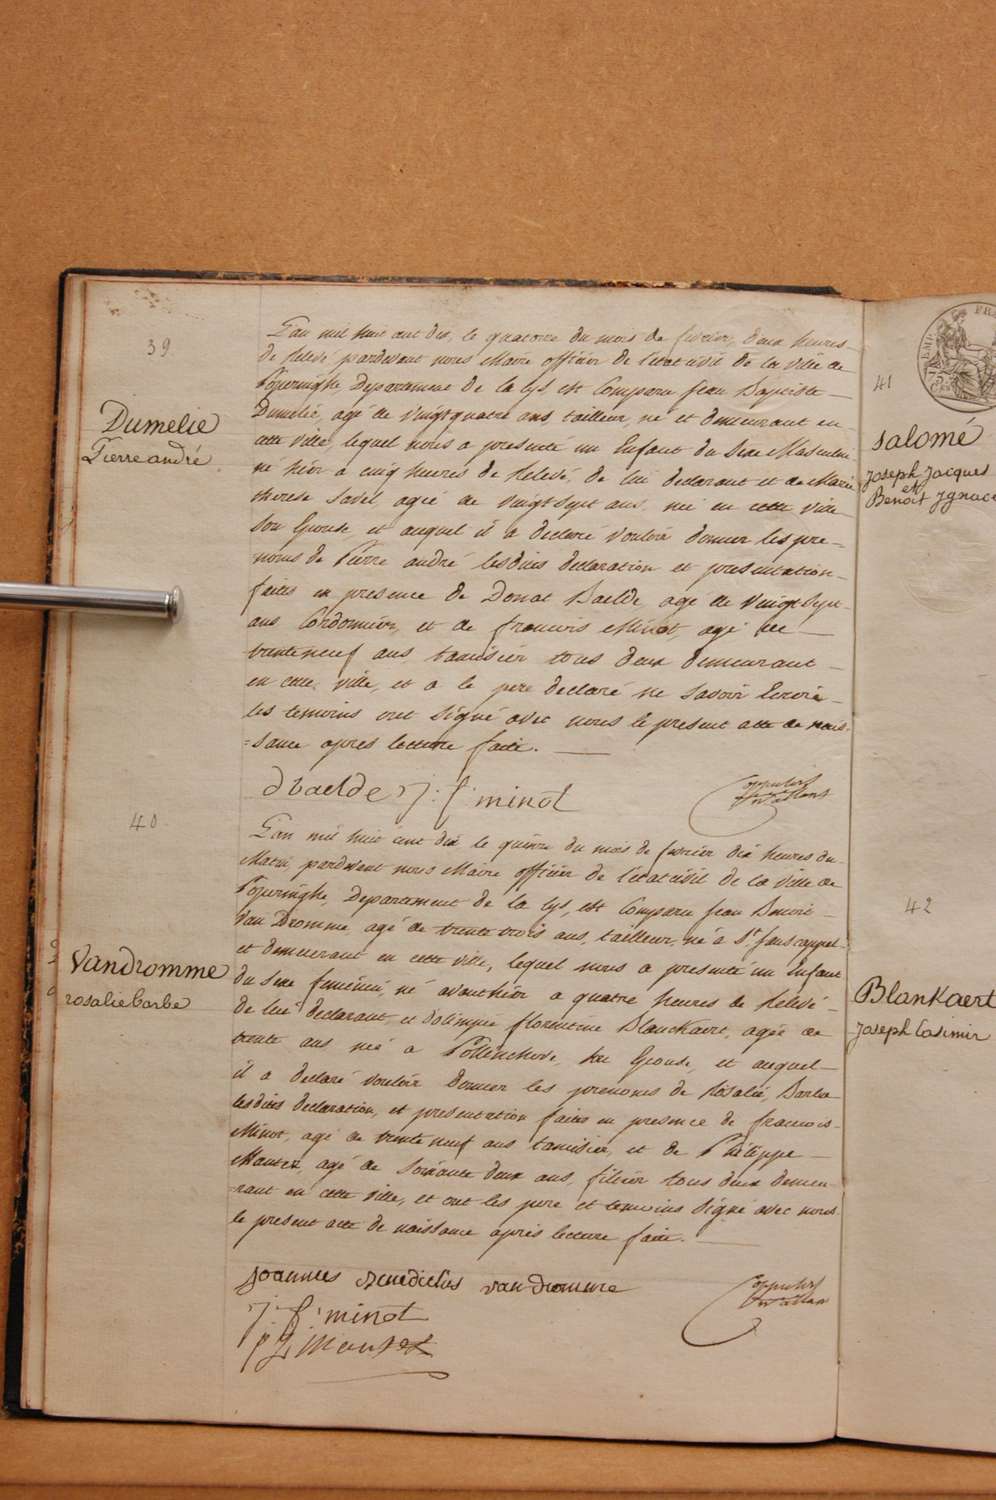 39
Dumelie
Pierre andré
L'an mil huit cent dix, le quatorze du mois de fevrier, deux heures
de Relevé pardevant nous Maire officier de l'etat civil de la ville de
Poperinghe, Departement de la Lys, est Comparu Jean Baptiste
Dumelie, agé de vingt quatre ans, tailleur, né et demeurant en
cette ville, lequel nous a presenté un Enfant du Sexe Masculin
né hier a cinq heures de Relevé, de lui declarant et de Marie
therese Savel, agée de vingt Sept ans, née en cette ville
Son Epouse, et auquel il a declaré vouloir donner les pre=
noms de Pierre andré lesdites declaration et presentation
faites en presence de Donat Baelde, agé de vingt Sept
ans Cordonnier, et de francois Minot, agé de
trente neuf ans tamisier tous deux demeurant
en cette ville, et a le pere declaré ne Savoir Ecrire
les temoins ont Signé avec nous le present acte de nais-
=sance apres lecture faite.
dbaelde j: f: minot
40
Vandromme
rosalie barbe
L'an mil huit cent dix le quinze du mois de fevrier dix heures du
Matin, pardevant nous Maire officier de l'etat civil de la ville de
Poperinghe, Departement de la Lys, est Comparu Jean Benoit
Van Dromme agé de trente trois ans, tailleur, né a St. Janscappel
et demeurant en cette ville, lequel nous a presenté un Enfant
du Sexe feminin, né avanthier a quatre heures de Relevé
de lui declarant, et d'olimpie florentine Blanckaert, agée de
trente ans née a Pollinchove, Son Epouse, et auquel
il a declaré vouloir Donner les prenoms de Rosalie, Barbe
lesdites declaration, et presentation faites en presence de francois
Minot, agé de trente neuf ans tamisier, et de Philippe
Mantez, agé de Soixante deux ans, filtier tous deux demeu-
-rant en cette ville, et ont les pere et temoins Signé avec nous
le present acte de naissance apres lecture faite.
Joannes Benedictus van dromme
j: f: minot
41
Salomé
Joseph Jacques
et
Benoit Ignace
42
Blankaert
Joseph Casimir